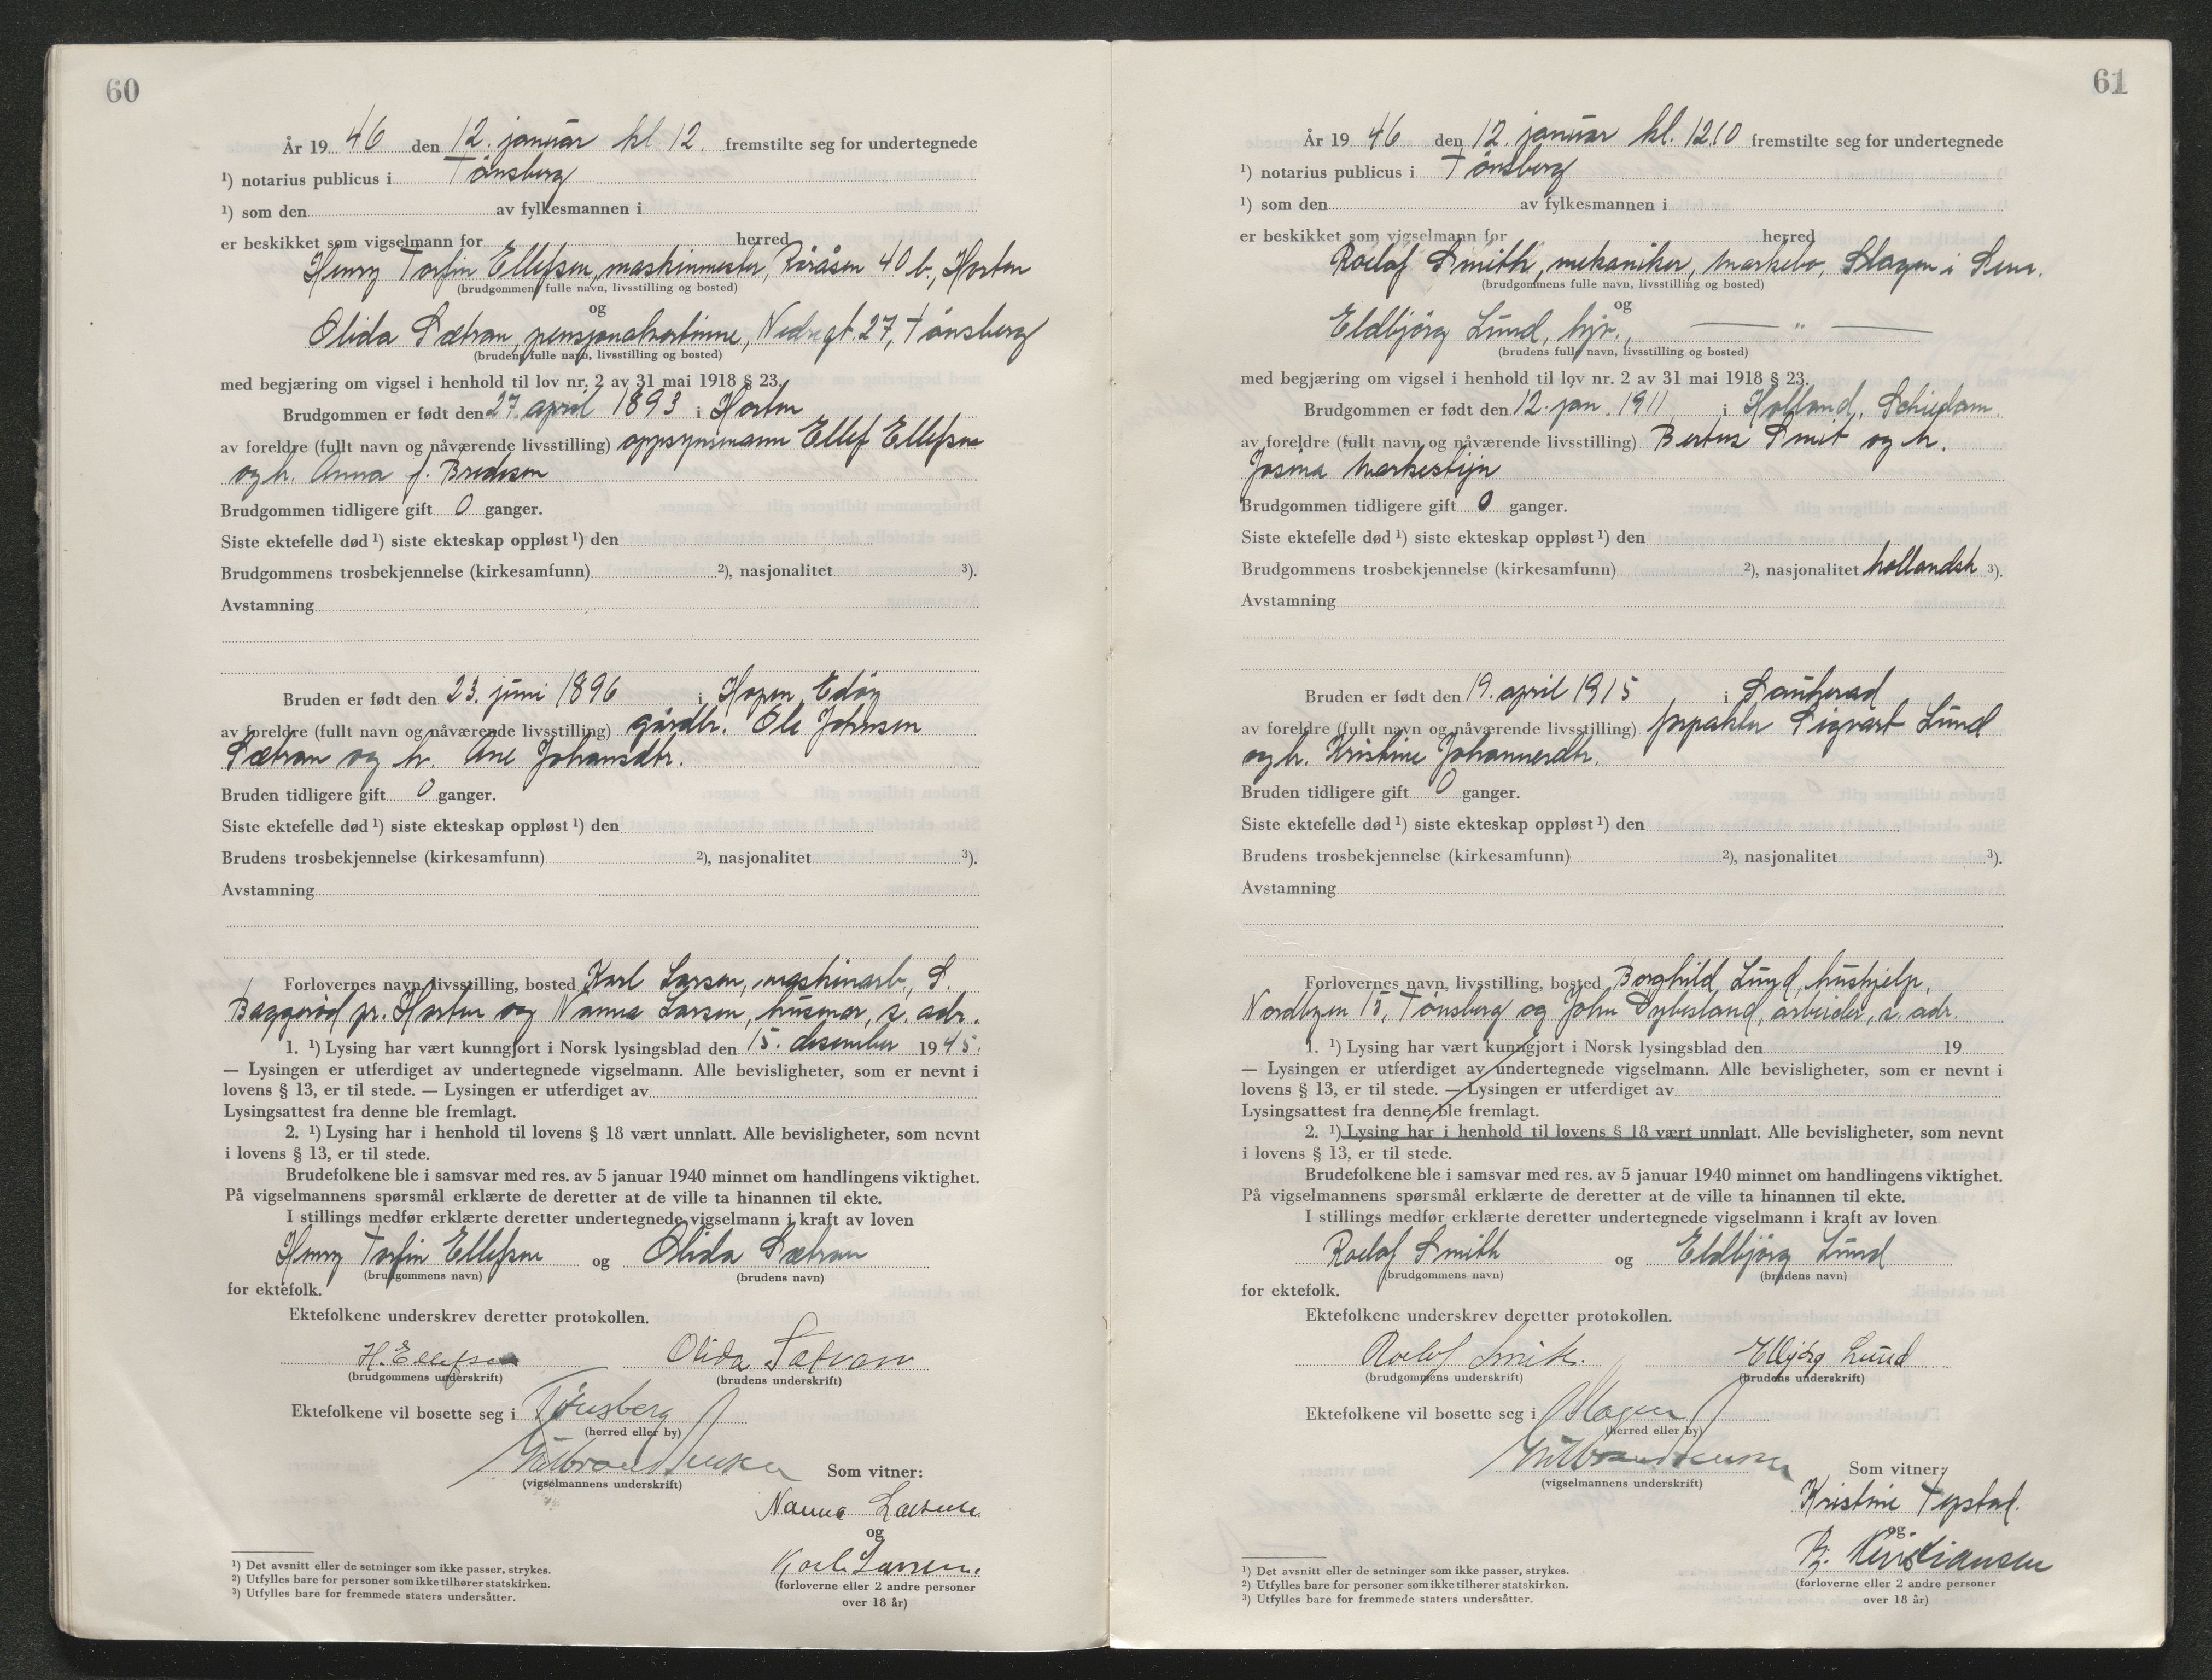 60
År 19 46 den 12. januar kl 12. fremstilte seg for undertegnede
¹) notarius publicus i Tönsberg
¹) som den av fylkesmannen i
er beskikket som vigselmann for herred
Henry Torfin Ellefsen, maskinmester, Röråsen 40 b, Horten
(brudgommens fulle navn, livsstilling og bosted)
og
Olida Sætran, pensjonatvertinne, Nedregt. 27, Tönsberg
(brudens fulle navn, livsstilling og bosted)
med begjæring om vigsel i henhold til lov nr. 2 av 31 mai 1918 § 23.
Brudgommen er født den 27. april 1893 i Horten
av foreldre (fullt navn og nåværende livsstilling) oppsynsmann Ellef Ellefsen
og h. Anna f. Bredesen
Brudgommen tidligere gift 0 ganger.
Siste ektefelle død ¹) siste ekteskap oppløst ¹) den
Brudgommens trosbekjennelse (kirkesamfunn) ²), nasjonalitet ³).
Avstamning
Bruden er født den 23. juni 1896 i Hopen, Edöy
av foreldre (fullt navn og nåværende livsstilling) gårdbr. Ole Johnsen
Sætran og h. Ane Johansdtr.
Bruden tidligere gift 0 ganger.
Siste ektefelle død ¹) siste ekteskap oppløst ¹) den
Brudens trosbekjennelse (kirkesamfunn) ²), nasjonalitet ³).
Avstamning
Forlovernes navn, livsstilling, bosted Karl Larsen, maskinarb., S.
Baggeröd pr. Horten og Nanna Larsen, husmor, s. adr.
1. ¹) Lysing har vært kunngjort i Norsk lysingsblad den 15. desember 1945.
— Lysingen er utferdiget av undertegnede vigselmann. Alle bevisligheter, som er nevnt i
lovens § 13, er til stede. — Lysingen er utferdiget av
Lysingsattest fra denne ble fremlagt.
2. ¹) Lysing har i henhold til lovens § 18 vært unnlatt. Alle bevisligheter, som nevnt
i lovens § 13, er til stede.
Brudefolkene ble i samsvar med res. av 5 januar 1940 minnet om handlingens viktighet.
På vigselmannens spørsmål erklærte de deretter at de ville ta hinannen til ekte.
I stillings medfør erklærte deretter undertegnede vigselmann i kraft av loven
Henry Torfin Ellefsen og Olida Sætran
(brudgommens navn) (brudens navn)
for ektefolk.
Ektefolkene underskrev deretter protokollen.
H. Ellefsen Olida Sætran
(brudgommens underskrift) (brudens underskrift)
Ektefolkene vil bosette seg i Tönsberg
(herred eller by)
(vigselmannens underskrift)
Som vitner:
Nanna Larsen
og
Karl Larsen.
(forloverne eller 2 andre personer
over 18 år)
¹) Det avsnitt eller de setninger som ikke passer, strykes.
²) Utfylles bare for personer som ikke tilhører statskirken.
³) Utfylles bare for fremmede staters undersåtter.
61
År 19 46 den 12. januar kl. 12.10 fremstilte seg for undertegnede
¹) notarius publicus i Tönsberg
¹) som den av fylkesmannen i
er beskikket som vigselmann for herred
Roelof Smith, mekaniker, Markebo, Slagen i Sem.
(brudgommens fulle navn, livsstilling og bosted)
og
Eldbjörg Lund, hjv., — " —
(brudens fulle navn, livsstilling og bosted)
med begjæring om vigsel i henhold til lov nr. 2 av 31 mai 1918 § 23.
Brudgommen er født den 12. jan. 1911 i Holland, Schiedam.
av foreldre (fullt navn og nåværende livsstilling) Bertus Smit og h.
Josina Markestijn
Brudgommen tidligere gift 0 ganger.
Siste ektefelle død ¹) siste ekteskap oppløst ¹) den
Brudgommens trosbekjennelse (kirkesamfunn) ²), nasjonalitet hollandsk ³).
Avstamning
Bruden er født den 19. april 1915 i Sauherad
av foreldre (fullt navn og nåværende livsstilling) forpakter Sigvart Lund
og h. Kristine Johannesdtr.
Bruden tidligere gift 0 ganger.
Siste ektefelle død ¹) siste ekteskap oppløst ¹) den
Brudens trosbekjennelse (kirkesamfunn) ²), nasjonalitet ³).
Avstamning
Forlovernes navn, livsstilling, bosted Borghild Lund, hushjelp,
Nordbyen 15, Tönsberg og John Dybesland, arbeider, s. adr.
1. ¹) Lysing har vært kunngjort i Norsk lysingsblad den 19
— Lysingen er utferdiget av undertegnede vigselmann. Alle bevisligheter, som er nevnt i
lovens § 13, er til stede. — Lysingen er utferdiget av
Lysingsattest fra denne ble fremlagt.
2. ¹) Lysing har i henhold til lovens § 18 vært unnlatt. Alle bevisligheter, som nevnt
i lovens § 13, er til stede.
Brudefolkene ble i samsvar med res. av 5 januar 1940 minnet om handlingens viktighet.
På vigselmannens spørsmål erklærte de deretter at de ville ta hinannen til ekte.
I stillings medfør erklærte deretter undertegnede vigselmann i kraft av loven
Roelof Smith og Eldbjörg Lund
(brudgommens navn) (brudens navn)
for ektefolk.
Ektefolkene underskrev deretter protokollen.
Roelof Smith. Elbjörg Lund
(brudgommens underskrift) (brudens underskrift)
Ektefolkene vil bosette seg i Slagen
(herred eller by)
(vigselmannens underskrift)
Som vitner:
Kristine
og
Kristiansen
(forloverne eller 2 andre personer
over 18 år)
¹) Det avsnitt eller de setninger som ikke passer, strykes.
²) Utfylles bare for personer som ikke tilhører statskirken.
³) Utfylles bare for fremmede staters undersåtter.